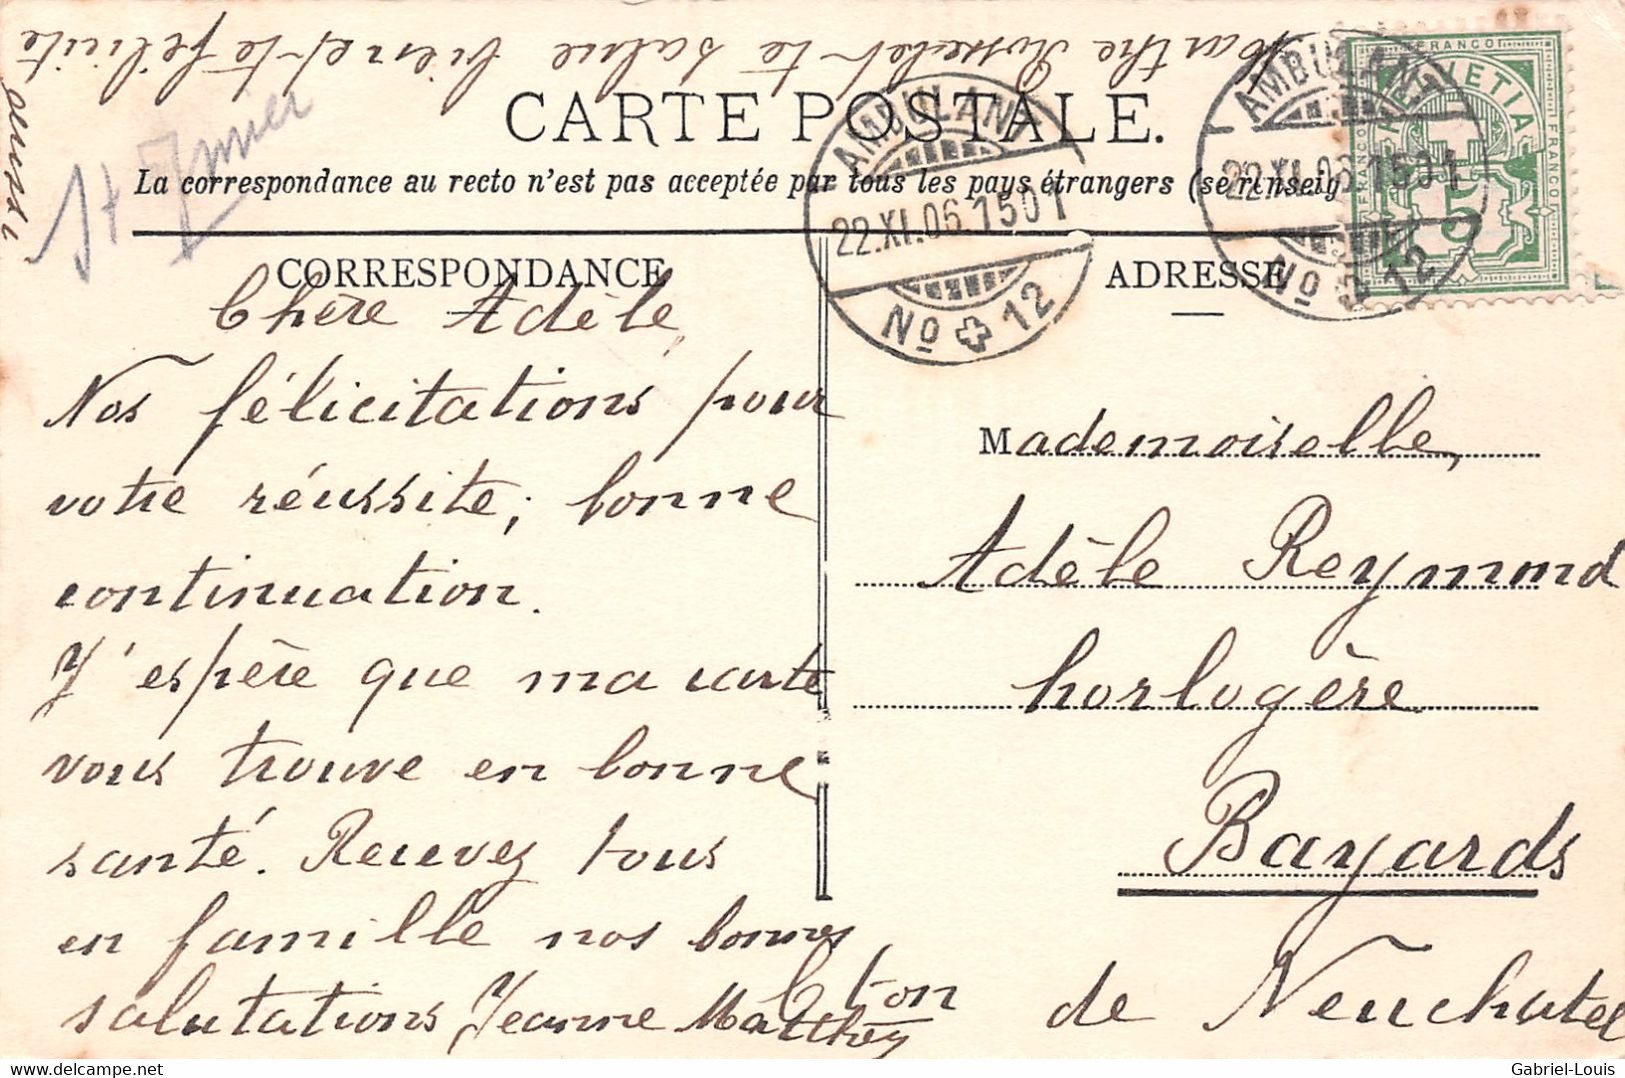 Marthe Rosselet te salue bien et te félicite
aussi
St Imier
CARTE POSTALE.
La correspondance au recto n'est pas acceptée par tous les pays étrangers (se renseig
CORRESPONDANCE
Chère Adèle,
Nos félicitations pour
votre réussite; bonne
continuation.
J'espère que ma carte
vous trouve en bonne
santé. Recevez tous
en famille nos bonnes
salutations Jeanne Matthey
ADRESSE
Mademoiselle,
Adèle Reymond
horlogère
Bayards
Cton de Neuchatel
AMBULANT
22.XI.06.1501
No 12
AMBULANT
22.XI.06.1501
No 12
FRANCO
HELVETIA
FRANCO
FRANCO
5
delcampe.net
Gabriel-Louis